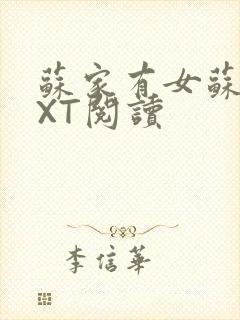 蘇家有女蘇
XT閱讀
李信華